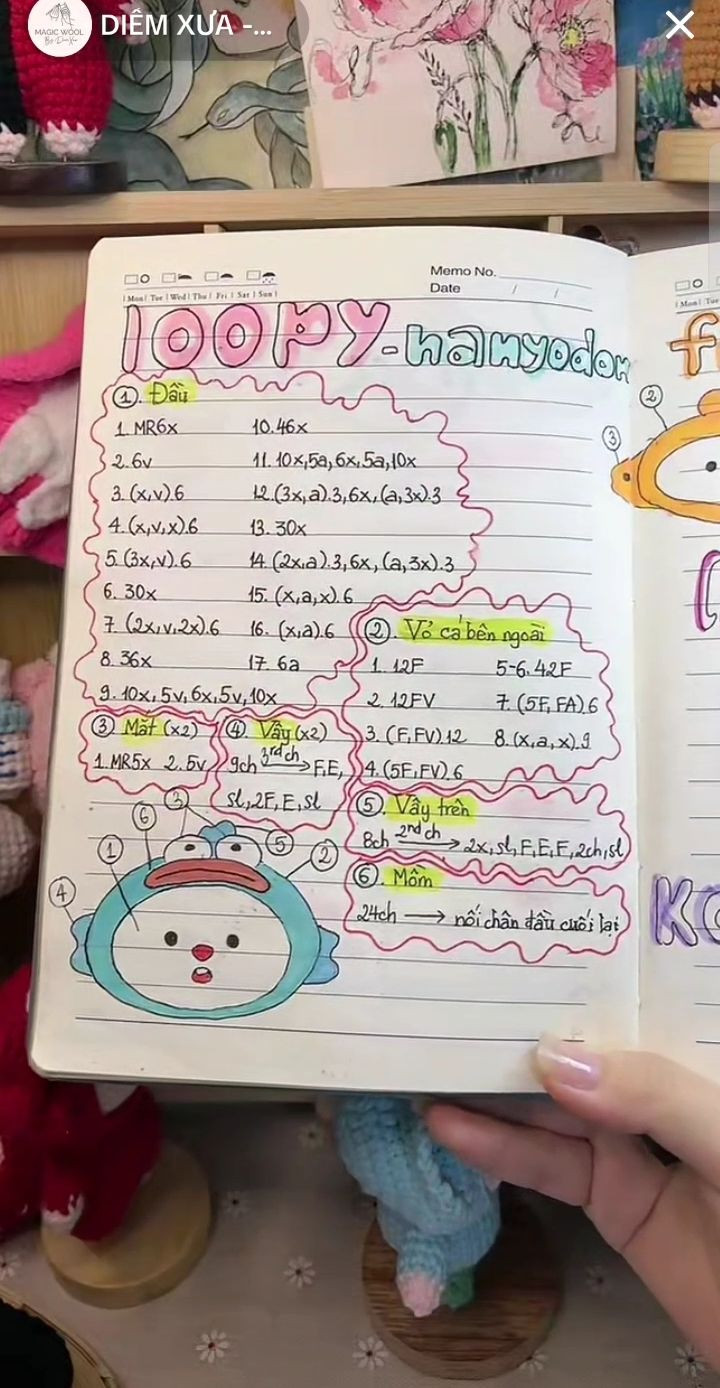 MAGIC WOOL
DIỄM XƯA -...
Memo No.
Date / /
Mon Tue Wed Thu Fri Sat Sun
loopy-hanyodon
①. Đầu
1. MR6x
2. 6v
3. (x,v).6
4. (x,v,x).6
5. (3x,v).6
6. 30x
7. (2x,v,2x).6
8. 36x
9. 10x,5v,6x,5v,10x
10. 46x
11. 10x,5a,6x,5a,10x
12. (3x,a).3,6x,(a,3x).3
13. 30x
14. (2x,a).3,6x,(a,3x).3
15. (x,a,x).6
16. (x,a).6
17. 6a
②. Vỏ cá bên ngoài
1. 12F
2. 12FV
3. (F,FV).12
4. (5F,FV).6
5-6. 42F
7. (5F,FA).6
8. (x,a,x).9
③ Mắt (x2)
1. MR5x 2. 5v
④. Vây (x2)
9ch 3rd ch → F,E,
sl,2F,E,sl
⑤. Vây trên
8ch 2nd ch → 2x,sl,F,E,F,2ch,sl
⑥. Mồm
24ch → nối chân đầu cuối lại
③
⑥
①
⑤
②
④
②
③
f
K